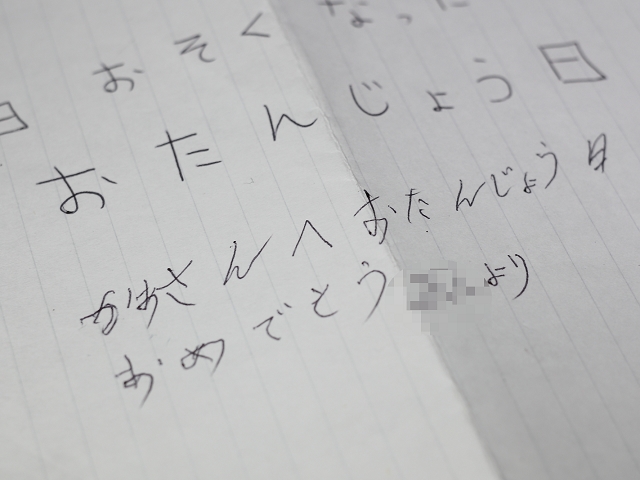 おそくなった
日
おたんじょう日
かあさんへおたんじょう日
おめでとう
より